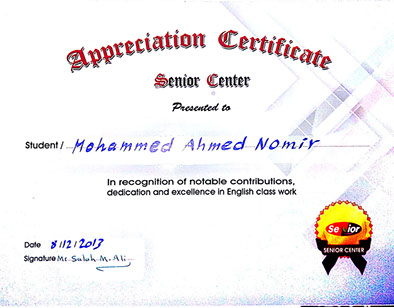 Appreciation Certificate
Senior Center
Presented to
Student / Mohammed Ahmed Nomir
In recognition of notable contributions,
dedication and excellence in English class work
Senior
SENIOR CENTER
Date 8/12/2017
Signature Mr. Salah M. Ali